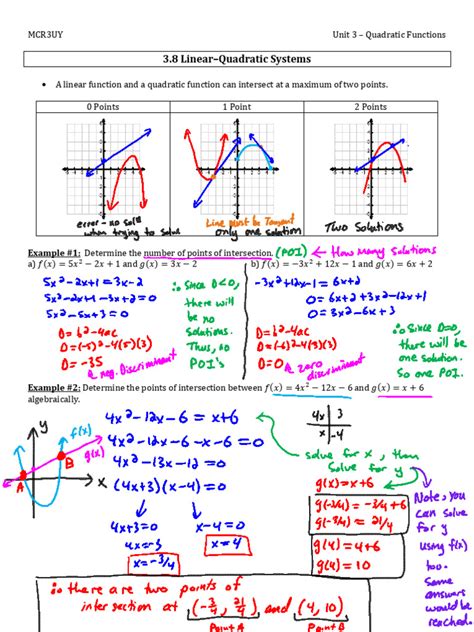 MCR3UY Unit 3 – Quadratic Functions
3.8 Linear–Quadratic Systems
• A linear function and a quadratic function can intersect at a maximum of two points.
0 Points 1 Point 2 Points
error - no soln
when trying to solve
Line must be Tangent
only one solution
Two Solutions
Example #1: Determine the number of points of intersection. (POI) ← How many solutions
a) f(x) = 5x² − 2x + 1 and g(x) = 3x − 2 b) f(x) = −3x² + 12x − 1 and g(x) = 6x + 2
5x²-2x+1=3x-2
5x²-2x+1-3x+2=0
5x²-5x+3=0
D=b²-4ac
D=(-5)²-4(5)(3)
D= -35
neg. Discriminant
∴ Since D<0,
there will
be no
solutions.
Thus, no
POI's
-3x²+12x-1=6x+2
0=6x+2+3x²-12x+1
0=3x²-6x+3
D=b²-4ac
D=(-6)²-4(3)(3)
D=0
zero
discriminant
∴ Since D=0,
there will be
one solution.
So one POI.
Example #2: Determine the points of intersection between f(x) = 4x² − 12x − 6 and g(x) = x + 6
algebraically.
y
f(x)
g(x)
A
B
x
4x²-12x-6=x+6
4x²-12x-6-x-6=0
4x²-13x-12=0
(4x+3)(x-4)=0
4x+3=0 x-4=0
4x=-3 x=4
x=-3/4
4x 3
x -4
solve for x, then
solve for y
g(x)=x+6
g(-3/4)=-3/4+6
g(-3/4)=21/4
g(4)=4+6
g(4)=10
Note, you
can solve
for y
using f(x)
too.
Same
answers
would be
reached.
∴ there are two points of
intersection at (-3/4, 21/4) and (4, 10)
Point A Point B